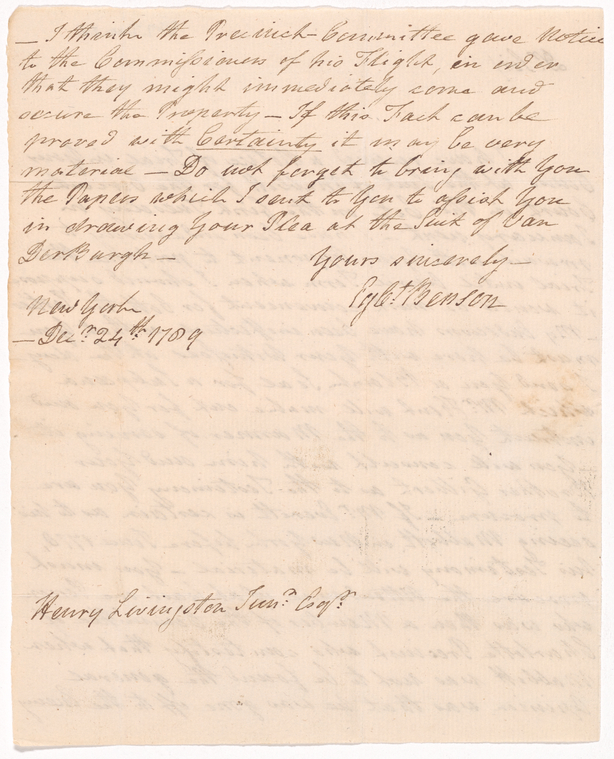 — I think the Precinct-Committee gave Notice
to the Commissioners of his Flight, in order
that they might immediately come and
secure the Property — If this Fact can be
proved with Certainty it may be very
material — Do not forget to bring with You
the Papers which I sent to You to assist You
in drawing Your Plea at the Suit of Van
DerBurgh —
Yours sincerely —
Egbt. Benson
New York
— Decr. 24th. 1789
Henry Livingston Junr. Esqr.